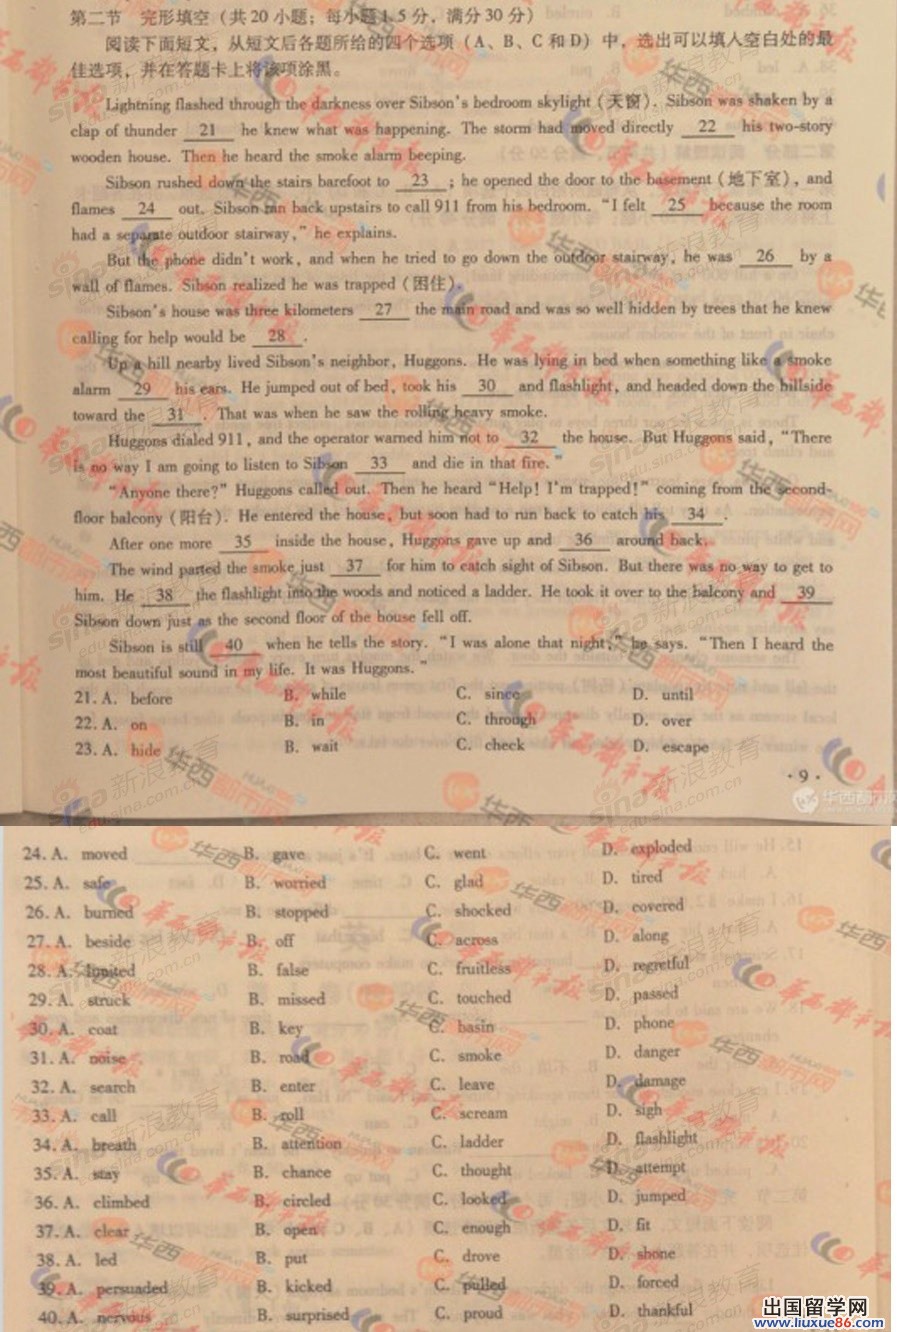 第二节 完形填空（共20小题；每小题1.5分，满分30分）
阅读下面短文，从短文后各题所给的四个选项（A、B、C和D）中，选出可以填入空白处的最
佳选项，并在答题卡上将该项涂黑。
Lightning flashed through the darkness over Sibson's bedroom skylight (天窗). Sibson was shaken by a
clap of thunder 21 he knew what was happening. The storm had moved directly 22 his two-story
wooden house. Then he heard the smoke alarm beeping.
Sibson rushed down the stairs barefoot to 23 ; he opened the door to the basement (地下室), and
flames 24 out. Sibson ran back upstairs to call 911 from his bedroom. "I felt 25 because the room
had a separate outdoor stairway," he explains.
But the phone didn't work, and when he tried to go down the outdoor stairway, he was 26 by a
wall of flames. Sibson realized he was trapped (困住).
Sibson's house was three kilometers 27 the main road and was so well hidden by trees that he knew
calling for help would be 28 .
Up a hill nearby lived Sibson's neighbor, Huggons. He was lying in bed when something like a smoke
alarm 29 his ears. He jumped out of bed, took his 30 and flashlight, and headed down the hillside
toward the 31 . That was when he saw the rolling heavy smoke.
Huggons dialed 911, and the operator warned him not to 32 the house. But Huggons said, "There
is no way I am going to listen to Sibson 33 and die in that fire."
"Anyone there?" Huggons called out. Then he heard "Help! I'm trapped!" coming from the second-
floor balcony (阳台). He entered the house, but soon had to run back to catch his 34 .
After one more 35 inside the house, Huggons gave up and 36 around back.
The wind parted the smoke just 37 for him to catch sight of Sibson. But there was no way to get to
him. He 38 the flashlight into the woods and noticed a ladder. He took it over to the balcony and 39
Sibson down just as the second floor of the house fell off.
Sibson is still 40 when he tells the story. "I was alone that night," he says. "Then I heard the
most beautiful sound in my life. It was Huggons."
21. A. before B. while C. since D. until
22. A. on B. in C. through D. over
23. A. hide B. wait C. check D. escape
· 9 ·
24. A. moved B. gave C. went D. exploded
25. A. safe B. worried C. glad D. tired
26. A. burned B. stopped C. shocked D. covered
27. A. beside B. off C. across D. along
28. A. limited B. false C. fruitless D. regretful
29. A. struck B. missed C. touched D. passed
30. A. coat B. key C. basin D. phone
31. A. noise B. road C. smoke D. danger
32. A. search B. enter C. leave D. damage
33. A. call B. roll C. scream D. sigh
34. A. breath B. attention C. ladder D. flashlight
35. A. stay B. chance C. thought D. attempt
36. A. climbed B. circled C. looked D. jumped
37. A. clear B. open C. enough D. fit
38. A. led B. put C. drove D. shone
39. A. persuaded B. kicked C. pulled D. forced
40. A. nervous B. surprised C. proud D. thankful
出国留学网
www.liuxue86.com